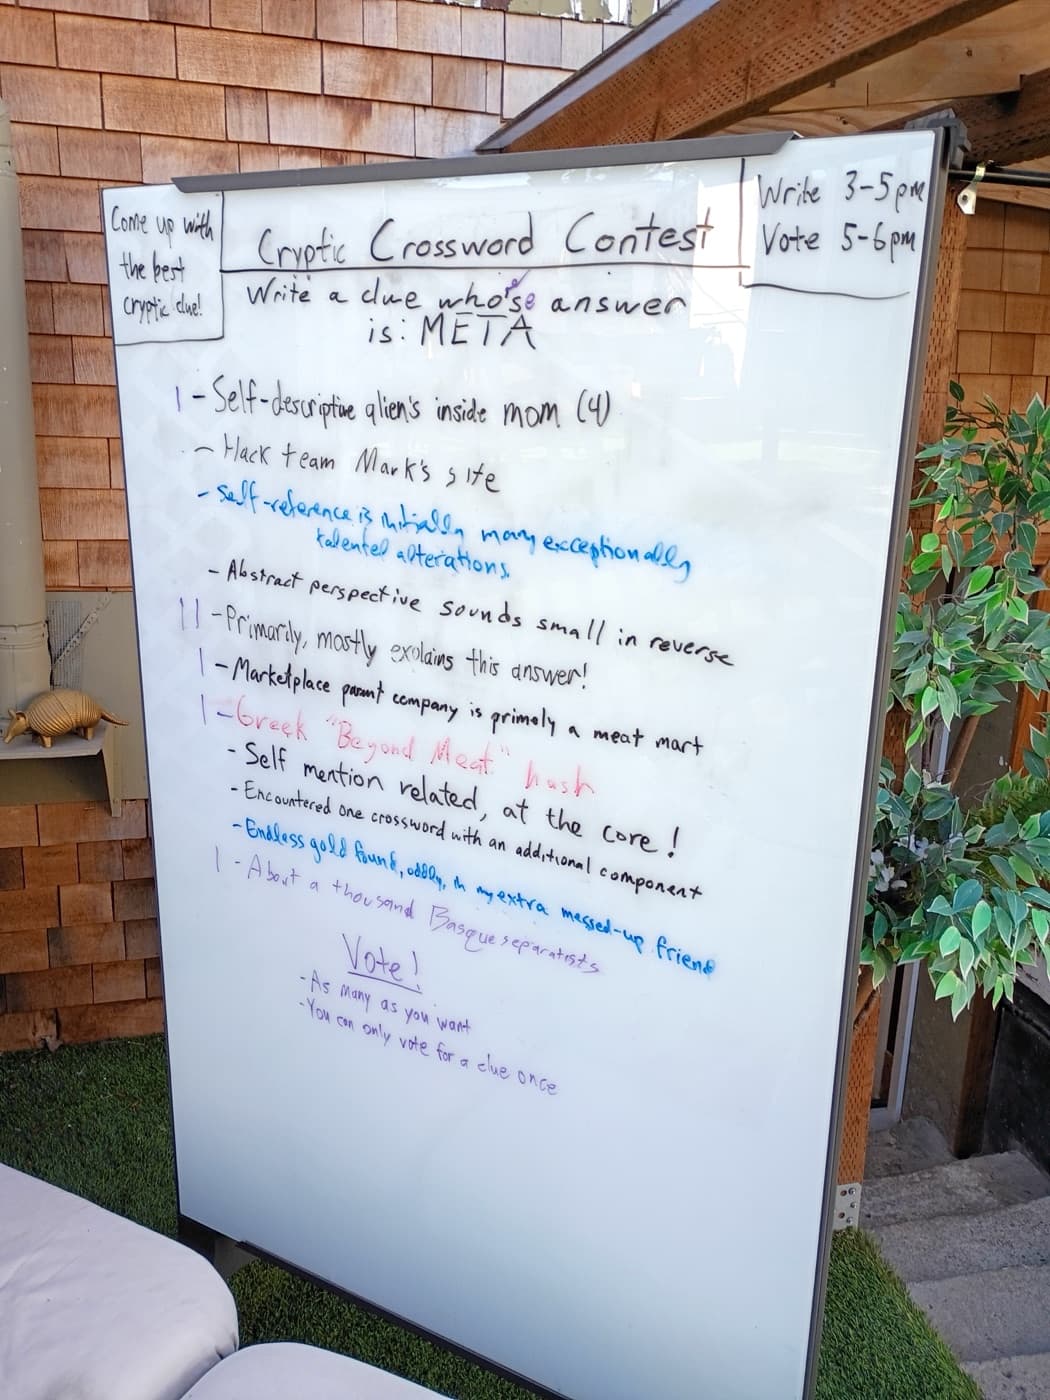 Come up with
the best
cryptic clue!
Cryptic Crossword Contest
Write 3-5pm
Vote 5-6pm
Write a clue whose answer
is: META
| - Self-descriptive alien's inside mom (4)
- Hack team Mark's site
- Self-reference is initially many exceptionally
talented alterations.
- Abstract perspective sounds small in reverse
|| - Primarily, mostly explains this answer!
| - Marketplace parent company is primely a meat mart
| - Greek "Beyond Meat" hash
- Self mention related, at the core!
- Encountered one crossword with an additional component
- Endless gold found, oddly, in my extra messed-up friend
| - About a thousand Basque separatists
Vote!
- As many as you want
- You can only vote for a clue once